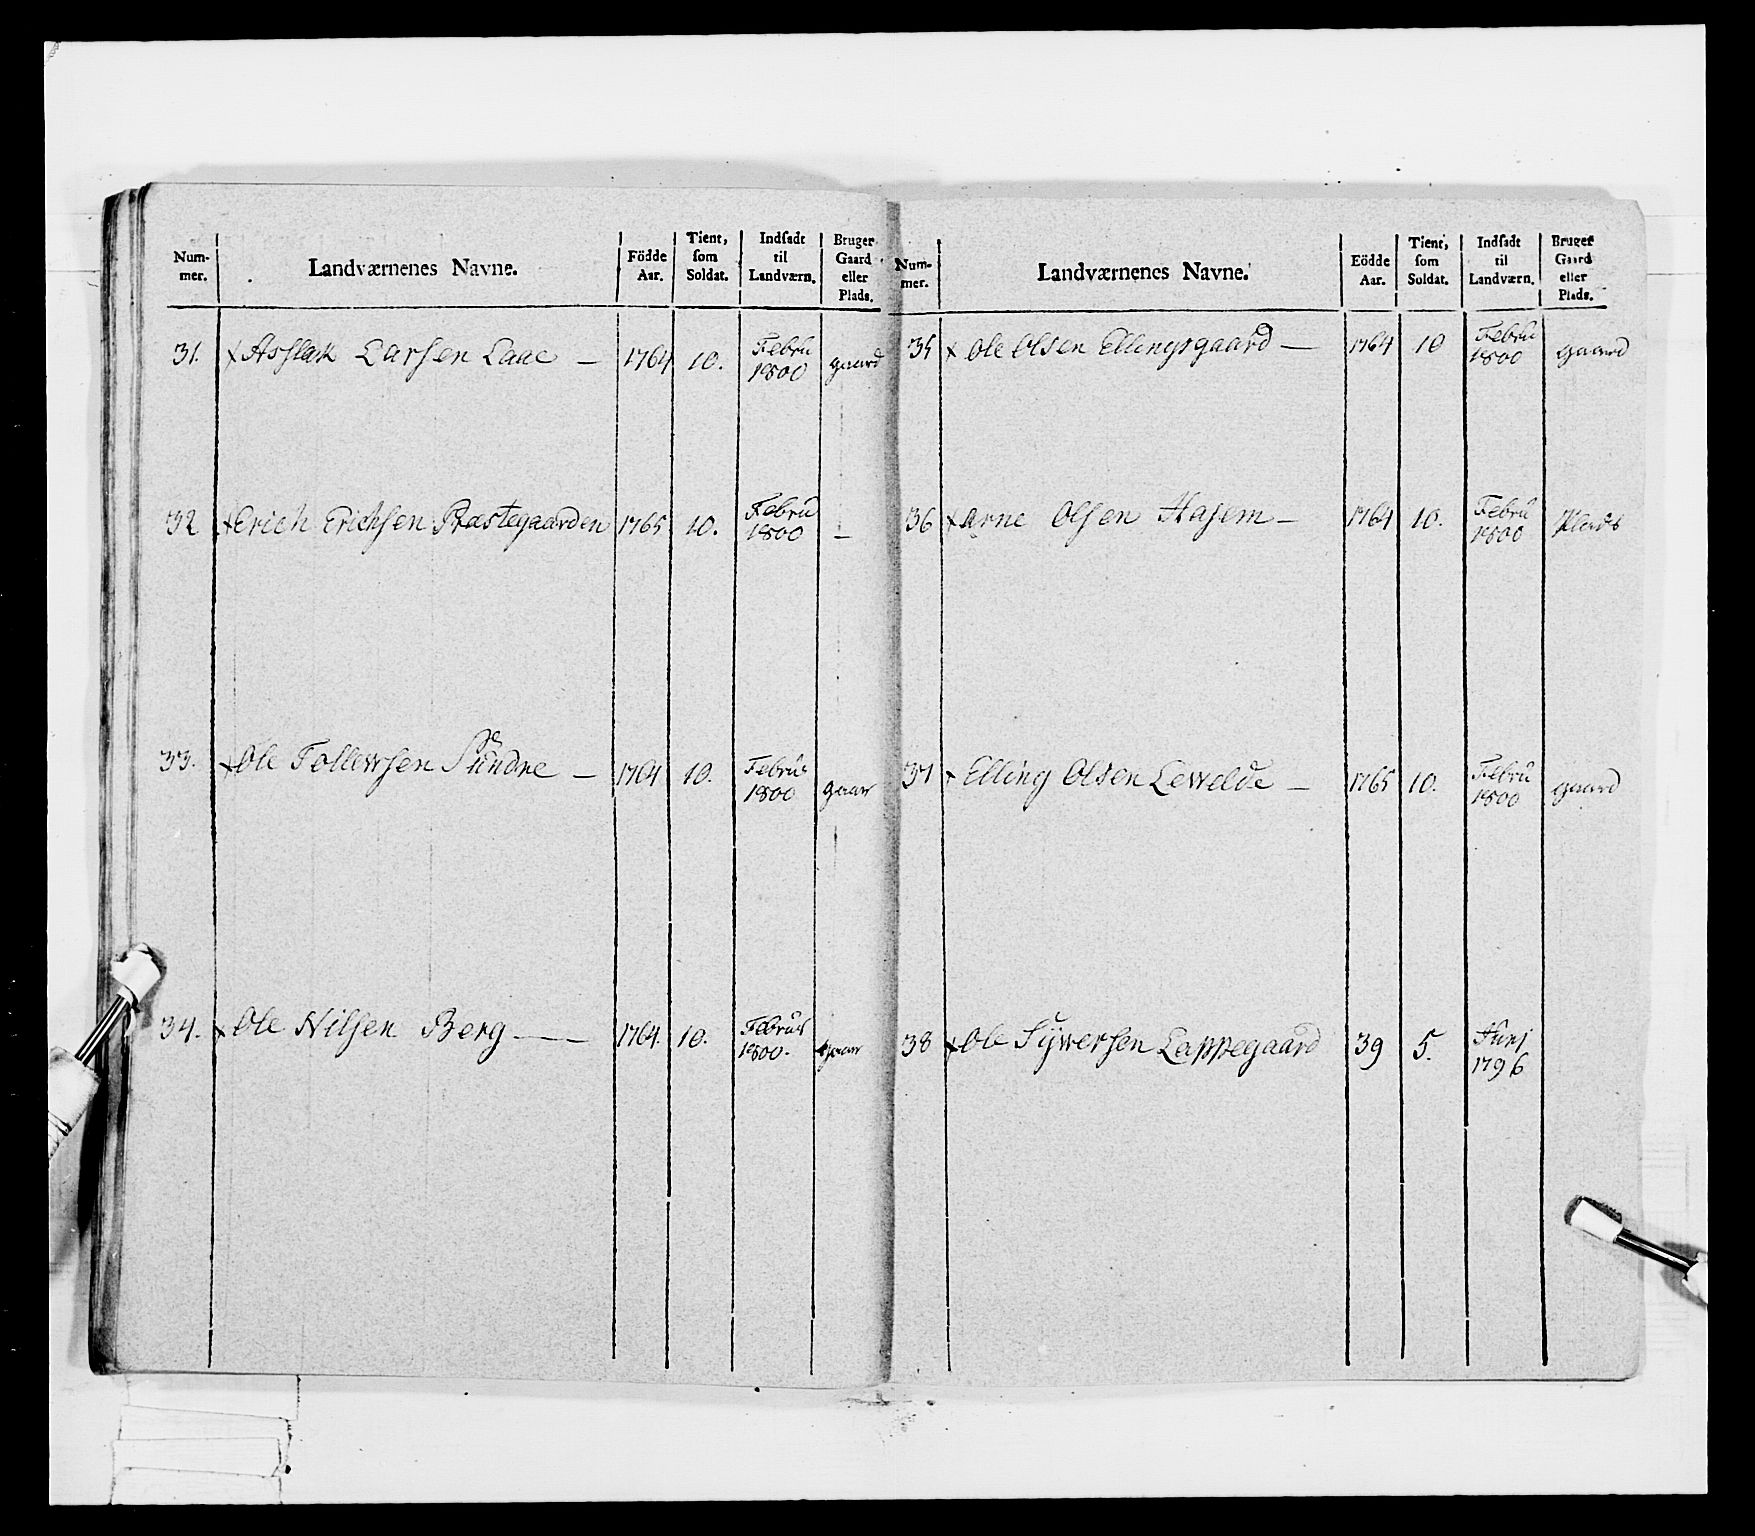 Num-
mer.
Landværnenes Navne.
Födde
Aar.
Tient,
som
Soldat.
Indsadt
til
Landværn.
Bruger
Gaard
eller
Plads.
31. Asslak Larsen Laae — 1764 10. Febru 1800 gaard
32 Erich Erichsen Præstegaarden 1765 10. Febru 1800 —
33. Ole Tollewsen Sündre — 1764 10. Febru 1800 gaar
34. Ole Nilsen Berg — 1764. 10. Febru 1800. gaar
Num-
mer.
Landværnenes Navne.
Eödde
Aar.
Tient,
som
Soldat.
Indsadt
til
Landværn.
Bruger
Gaard
eller
Plads.
35 Ole Olsen Ellingsgaard — 1764 10 Febru 1800 gaard
36 Arne Olsen Hasem — 1764 10. Febru 1800 Plads
37 Elling Olsen Lewelde — 1765 10. Febru 1800 gaard
38 Ole Sywersen Lappegaard 39 5. Junj 1796